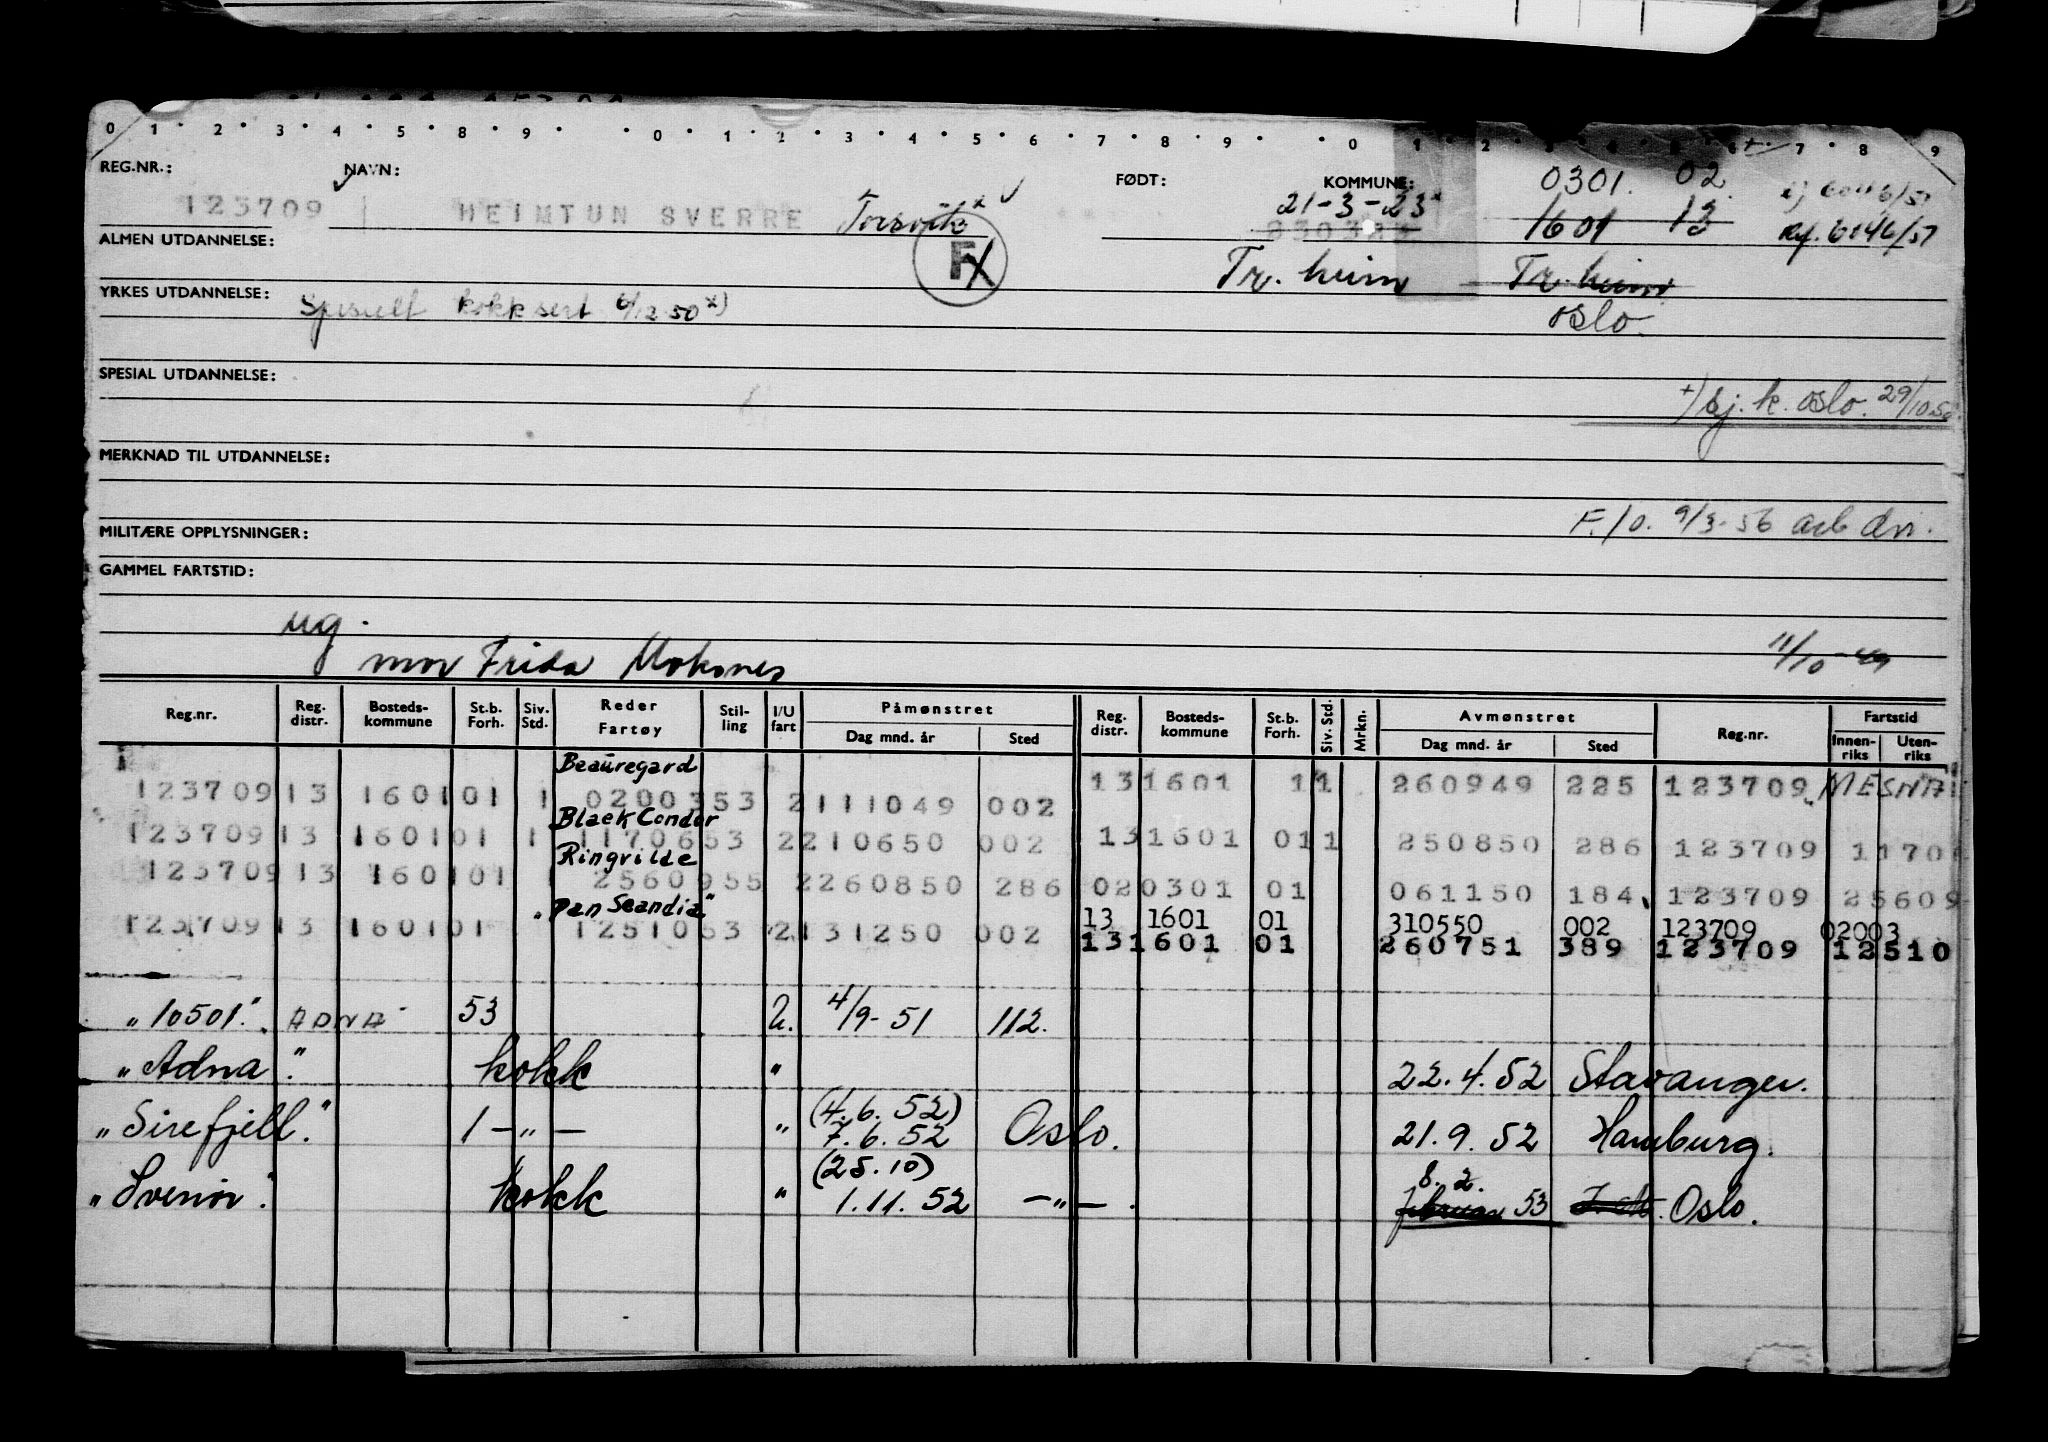 0 1 2 3 4 5 8 9 0 1 2 3 4 5 6 7 8 9 0 1 2 3 4 5 6 7 8 9
REG.NR.: NAVN: FØDT: KOMMUNE: 0301. 02
123709 HEIMTUN SVERRE Torsvik x 21-3-23 x 1601 13 Ref. 6146/57
ALMEN UTDANNELSE: F
Tr. heim Tr. heim
YRKES UTDANNELSE: Spesielt kokksert 6/12 50 x) oslo.
SPESIAL UTDANNELSE:
+) Sj. k. oslo. 29/10 56
MERKNAD TIL UTDANNELSE:
MILITÆRE OPPLYSNINGER: F./o. 9/3-56
GAMMEL FARTSTID:
ug.
mor Frida 11/10-49
Reg.nr. Reg. distr. Bosteds-kommune St.b. Forh. Siv. Std. Reder Fartøy Stil-ling I/U fart Påmønstret Dag mnd. år Sted Reg. distr. Bosteds-kommune St.b. Forh. Siv. Std. Mrkn. Avmønstret Dag mnd. år Sted Reg.nr. Fartstid Innen-riks Uten-riks
Beauregard
123709 13 1601 01 1 0200353 2 111049 002 13 1601 11 260949 225 123709 MESNA
Black Condor
123709 13 1601 01 1 1170653 2 210650 002 13 1601 01 1 250850 286 123709 1170
Ringvilde
123709 13 1601 01 1 2560955 2 260850 286 02 0301 01 061150 184 123709 25609
"Pan Scandia"
13 1601 01 310550 002 123709 02003
123709 13 1601 01 1251053 2 131250 002 13 1601 01 260751 389 123709 12510
"10501". ADNA 53 U. 4/9-51 112.
"Adna". kokk " 22.4.52 Stavanger.
"Sirefjell". 1 - " - " (4.6.52) 7.6.52 Oslo. 21.9.52 Hamburg.
"Svenør". kokk " (25.10) 1.11.52 - " - . 8.2. februar 53 Oslo.